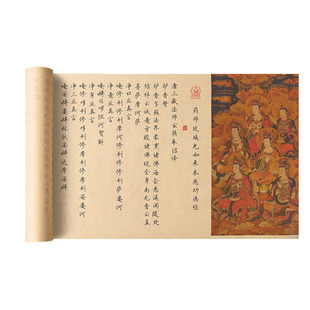 药师琉璃光如来本愿功德经
唐三藏法师玄奘奉诏译
炉香赞
炉香乍爇法界蒙熏诸佛海会悉遥闻随处
结祥云诚意方殷诸佛现全身南无香云盖
菩萨摩诃萨
净口业真言
唵修利修利摩诃修利修修利萨婆诃
净意业真言
唵嚩日啰怛诃贺斛
净身业真言
唵修哆利修哆利修摩利修摩利娑婆诃
净三业真言